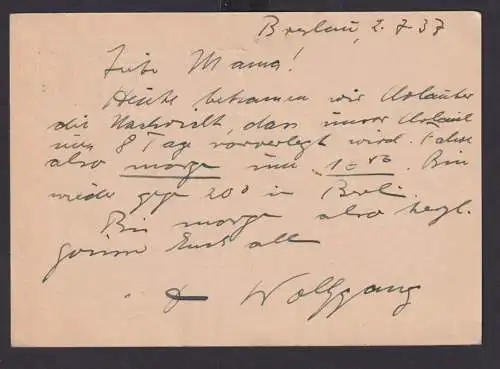 Breslau, 2.7.37
Liebe Mama!
Heute bekamen wir Urlauber
die Nachricht, dass unser Urlaub
um 8 Tage vorverlegt wird. Fahre
also morgen um . Bin
wieder gegen 20⁰ in Berlin.
Bis morgen also herzl.
Euch all
Wolfgang